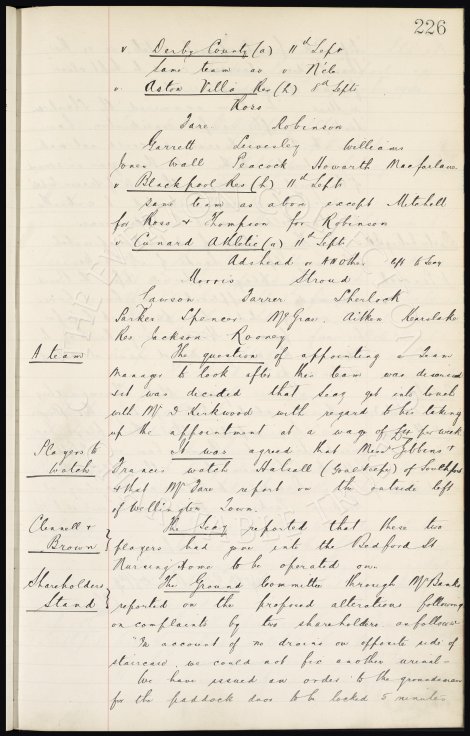 226
v Derby County (a) 11th Sept
same team as v N'cle
v. Aston Villa Res (h) 8th Sept
Ross
Fare. Robinson
Garrett Livesley Williams
Jones Wall Peacock Howarth Macfarlane
v Blackpool Res (h) 11th Sept
same team as above except Mitchell
for Ross & Thompson for Robinson
v Cunard Athletic (a) 11th Sept.
Adshead or A N Other left to Secy
Morris Stroud
Lawson Farrer Sherlock
Parker Spencer McGrae. Aitken Kearslake
Res Jackson Rooney
A team
The question of appointing a Team
Manager to look after this team was discussed
& it was decided that Secy get into touch
with Mr D Kirkwood with regard to his taking
up the appointment at a wage of £4 per week
Players to watch
It was agreed that Messrs Gibbins &
Francis watch Halsall (Goalkeeper) of Southport
& that Mr Fare report on the outside left
of Wellington Town.
Clennell & Brown
The Secy reported that these two
players had gone into the Bedford St
Nursing Home to be operated on.
Shareholders Stand
The Ground Committee through Mr Banks
reported on the proposed alterations following
on complaints by two shareholders as follows:-
"On account of no drains on opposite side of
staircase we could not fix another urinal-
We have issued an order to the groundsman
for the paddock door to be locked 5 minutes